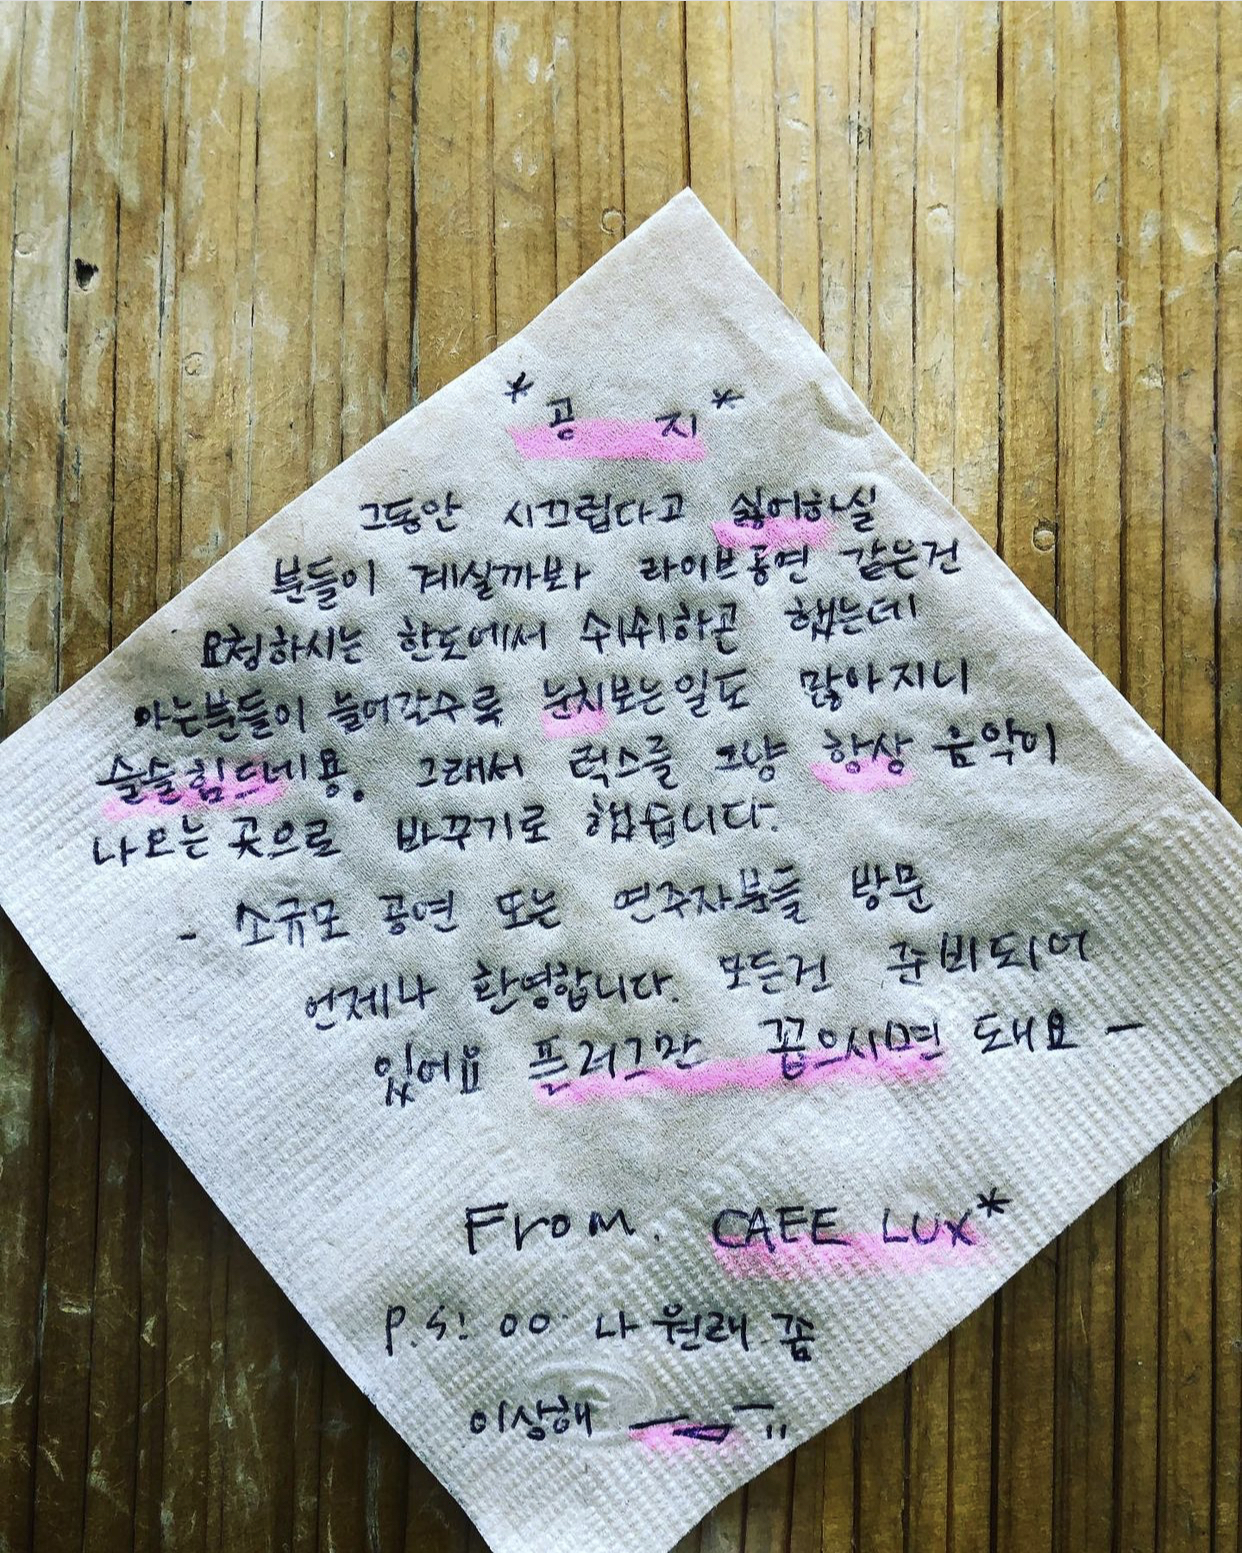 *공 지*
그동안 시끄럽다고 싫어하실
분들이 계실까봐 라이브공연 같은건
요청하시는 한도에서 쉬쉬하곤 했는데
아는분들이 늘어갈수록 눈치보는일도 많아지니
슬슬힘드네용. 그래서 럭스를 그냥 항상 음악이
나오는 곳으로 바꾸기로 했습니다.
- 소규모 공연 또는 연주자분들 방문
언제나 환영합니다. 모든건 준비되어
있어요 플러그만 꼽으시면 돼요 -
From. CAFE LUX*
P.S! ㅇㅇ 나 원래 좀
이상해